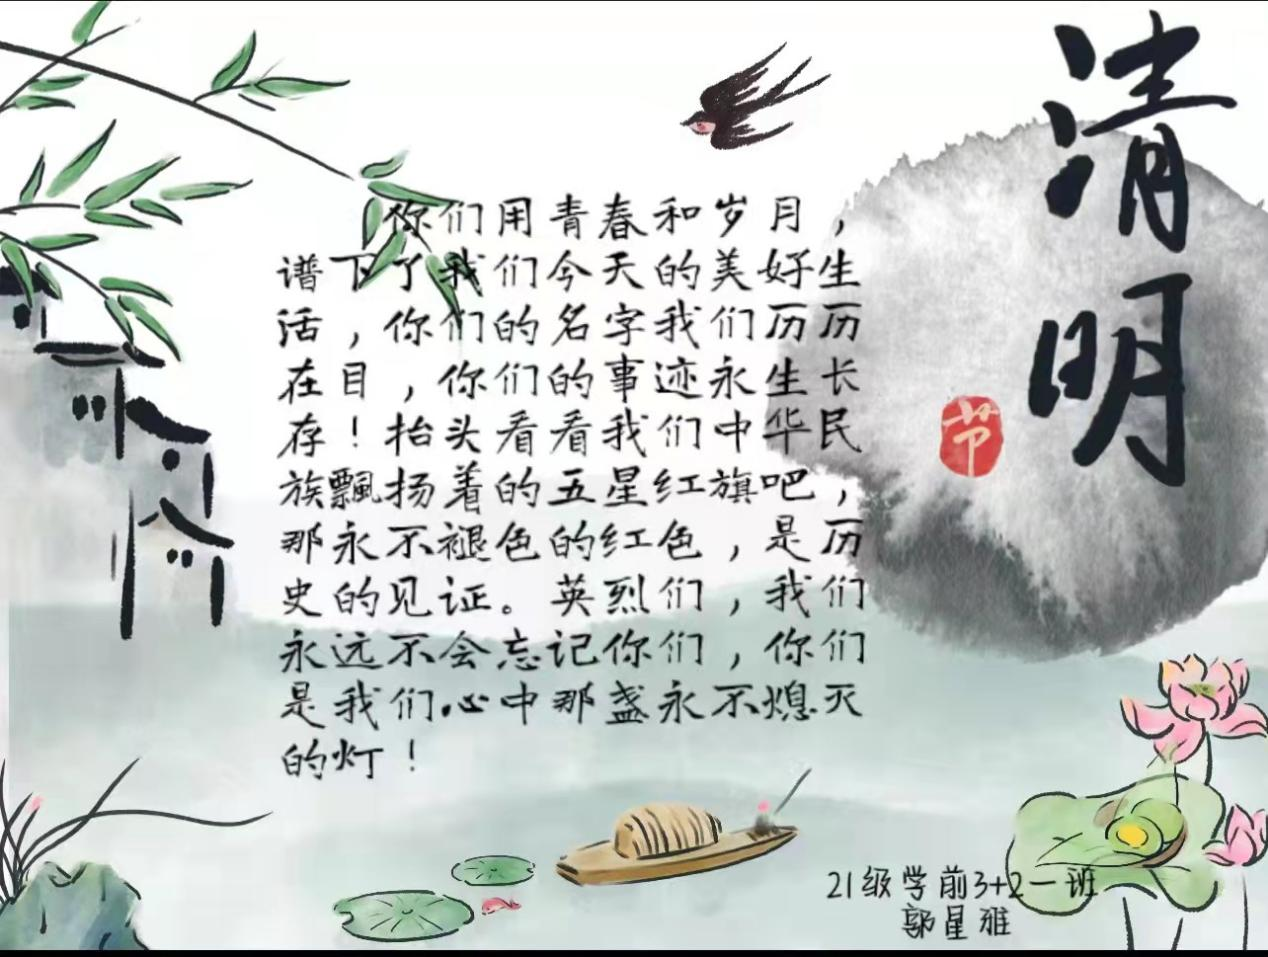 清明
节
你们用青春和岁月，
谱下了我们今天的美好生
活，你们的名字我们历历
在目，你们的事迹永生长
存！抬头看看我们中华民
族飘扬着的五星红旗吧，
那永不褪色的红色，是历
史的见证。英烈们，我们
永远不会忘记你们，你们
是我们心中那盏永不熄灭
的灯！
21级学前3+2一班
郭星雅